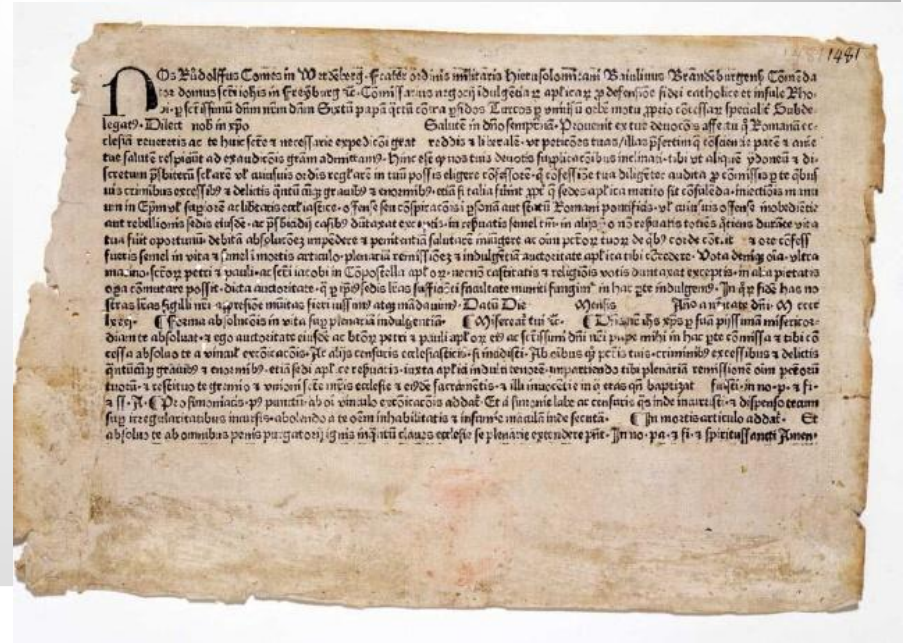 1481 1481
NOs Růdolffus Comes in Werdēberg. Frater ordinis militaris Hierusolomitani Baiulinus Brandēburgensis Comēda
tor domus scti iohis in Freyburg Comissarius negocij idulgētiaꝝ aplicaꝝ ꝓ defensiōe fidei catholice et insule Rho
di. ꝑ sctissimū dn̄m nrm dn̄m Sixtū papā cōtra ꝑfidos Turcos ꝑ vniuersū orbē motu ꝓprio cōcessaꝝ specialit Subde
legatꝰ. Dilect nob in xp̄o Salutē in dn̄o sempitnā. Prouenit ex tue deuocōis affectu ꝙ Romanā ec-
clesiā reueretis ac te huic scte et necessarie expedicōi grat reddis et liberalē. vt peticōes tuas illas ꝑsertim
tue salutē respiciūt ad exaudicōis grām admittamꝰ. Hinc ē ꝙ nos tuis deuotis supplicacōibus inclinati. tibi vt aliquē ydoneū et di-
scretum ꝑsbiterū sclarē vl cuiusuis ordis reglarē in tuū possis eligere cōfessorē. ꝙ cōfessiōe tua diligēter audita ꝓ cōmissis ꝑ te quibus
uis criminibus excessibꝰ et delictis grauibꝰ et enormibꝰ. etiā si talia fuint sedes aplica merito sit cōsulēda. iniectiōis manu
um in Epm̄ vl suꝑiorē ac libertatis ecclesiastice. offense seu cōspiracōis i ꝑsonā aut statū Romani pontificis. vl cuiusuis offense inobediētie
aut rebellionis sedis eiusdē. ac ꝑsbicidij casibꝰ dūtaxat exceptis. in reꝑuatis semel tm̄. in alijs ꝟo nō reꝑuatis totiēs quotiens durāte vita
tua fuit oportunū. debitā absolucōeꝫ impēdere et penitentiā salutarē iniūgere ac oim petōꝝ tuoꝝ de qbꝰ corde cōtrit et ore cōfess
fueris semel in vita et semel i mortis articulo. plenariā remissioneꝫ et indulgentiā auctoritate aplica tibi cōcedere. Vota deniqꝫ oīa. vltra
marino. sctoꝝ petri et pauli. ac scti iacobi in Cōpostella aploꝝ. necnō castitatis et religiōis votis duntaxat exceptis. in alia pietatis
oꝑa cōmutare possit. dicta auctoritate. ꝙ ꝑ ipsiꝰ sedis lr̄as sufficiēti facultate muniti fungimꝰ in hac ꝑte indulgemꝰ. In quoꝝ fidē has no
stras lr̄as sigilli nri apꝑensiōe munitas fieri iussimꝰ atqꝫ mādauimꝰ. Datū Die Mensis Anno a natiuitate dn̄i. M cccc
lxxxj. ¶ Forma absolucōis in vita suꝑ plenaria indulgentia. ¶ Misereat tui ⁊c. ¶ Dn̄s nr̄ ihs xp̄s ꝑ suā pijssimā misericor-
diam te absoluat. et ego auctoritate eiusdē ac btōꝝ petri et pauli aploꝝ eiꝰ ac sctissimi dn̄i nri pape mihi in hac ꝑte cōmissa et tibi cō
cessa absoluo te a vinculo excōicacōis. Ac alijs censuris ecclesiasticis. si incidisti. Ab oībus petis tuis. criminibꝰ excessibus et delictis
quātūcūqꝫ grauibꝰ et enormibꝰ. etiā sedi aplice reꝑuatis. iuxta aplici indulti tenorē. impartiendo tibi plenariā remissionē oim petōꝝ
tuoꝝ. et restituo te gremio et vnioni scte mr̄is ecclesie et eiꝰdē sacramētis. et illi inocētie in q eras qn̄ baptizat fuisti. in no. p. et fi.
et ss. A. ¶ Pro simoniacis. pꝰ punctū. ab oi vinculo excōicacōis addat. Et a simonie labe ac censuris qs inde incurristi. et dispenso tecum
suꝑ irregularitatibus incursis. abolendo a te oēm inhabilitatis et infamie maculā inde secutā. ¶ In mortis articulo addat. Et
absoluo te ab omnibus penis purgatorij ignis in qtū claues ecclesie se plenarie extendere pn̄t. In no. pa. et fi. et spiritussancti Amen.